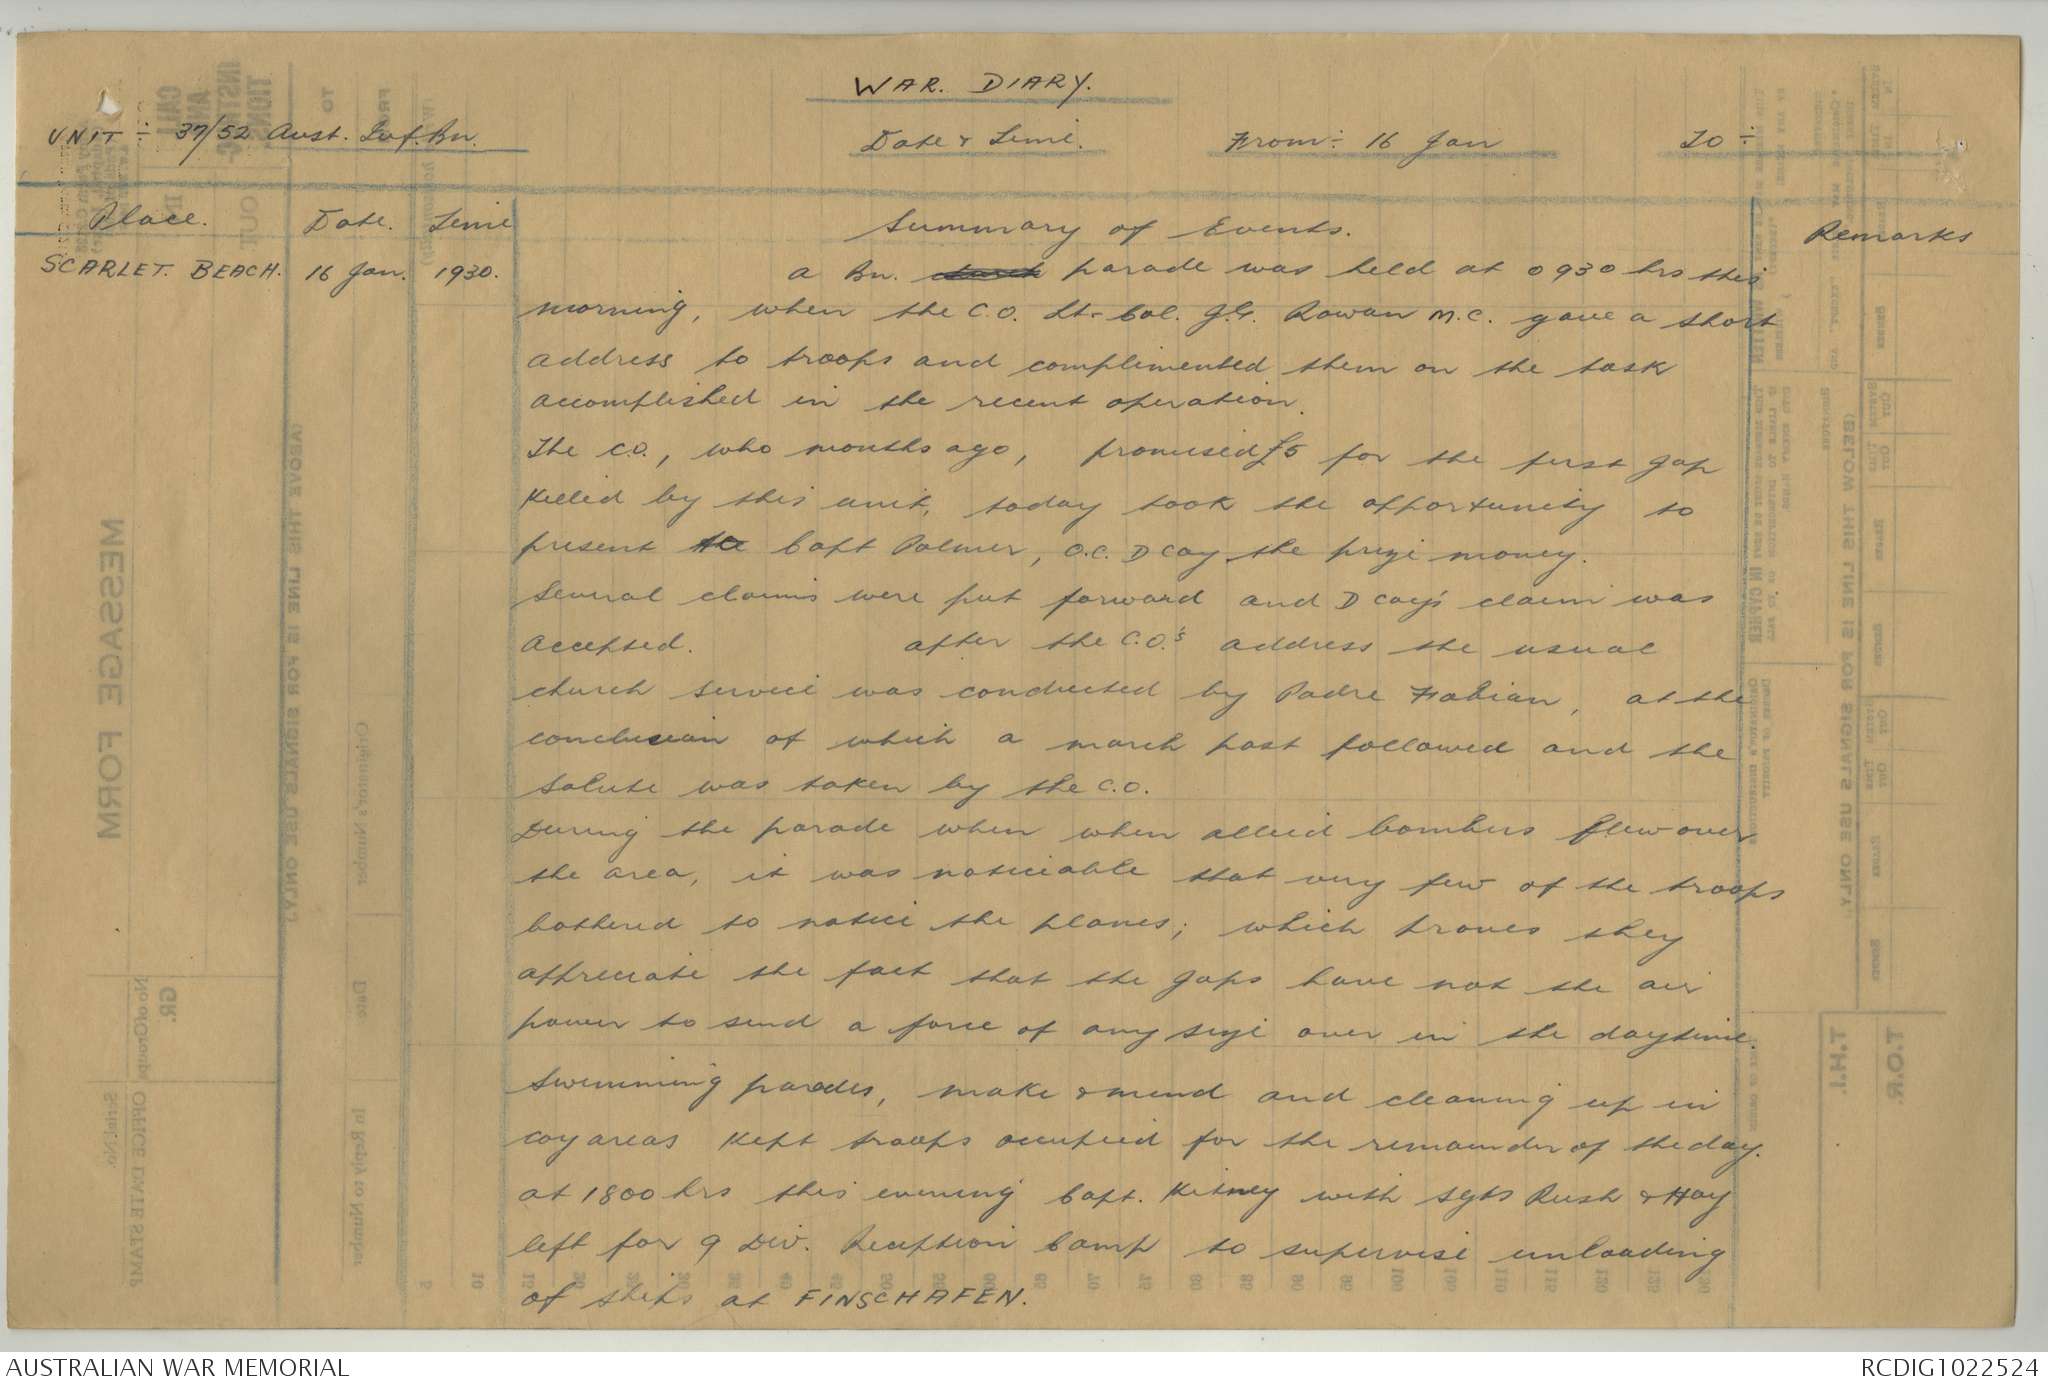 WAR. DIARY.
UNIT ÷ 37/52 Aust. Inf. Bn.
Date & Time. From ÷ 16 Jan To ÷
Place. Date. Time Summary of Events. Remarks
SCARLET. BEACH. 16 Jan. 1930. A Bn. parade was held at 0930 hrs this
morning, when the C.O. Lt-Col. J.G. Rowan M.C. gave a short
address to troops and complimented them on the task
accomplished in the recent operation.
The C.O., who months ago, promised £5 for the first Jap
killed by this unit, today took the opportunity to
present Capt Palmer, O.C. D Coy the prize money.
Several claims were put forward and D Coy's claim was
accepted. After the C.O.'s address the usual
church service was conducted by Padre Fabian, at the
conclusion of which a march past followed and the
salute was taken by the C.O.
During the parade when when allied bombers flew over
the area, it was noticiable that very few of the troops
bothered to notice the planes; which proves they
appreciate the fact that the Japs have not the air
power to send a force of any size over in the daytime.
Swimming parades, make & mend and cleaning up in
coy areas kept troops occupied for the remainder of the day.
At 1800 hrs this evening Capt. Kitney with Sgts Rush & Hay
left for 9 Div. Reception Camp to supervise unloading
of ships at FINSCHAFEN.
MESSAGE FORM
(ABOVE THIS LINE IS FOR SIGNALS USE ONLY.)
(BELOW THIS LINE IS FOR SIGNALS USE ONLY.)
Originator's Number
Date
In Reply to Number
GR.
No of Groups
OFFICE DATE STAMP
Serial No.
T.H.I.
T.O.R.
AUSTRALIAN WAR MEMORIAL
RCDIG1022524